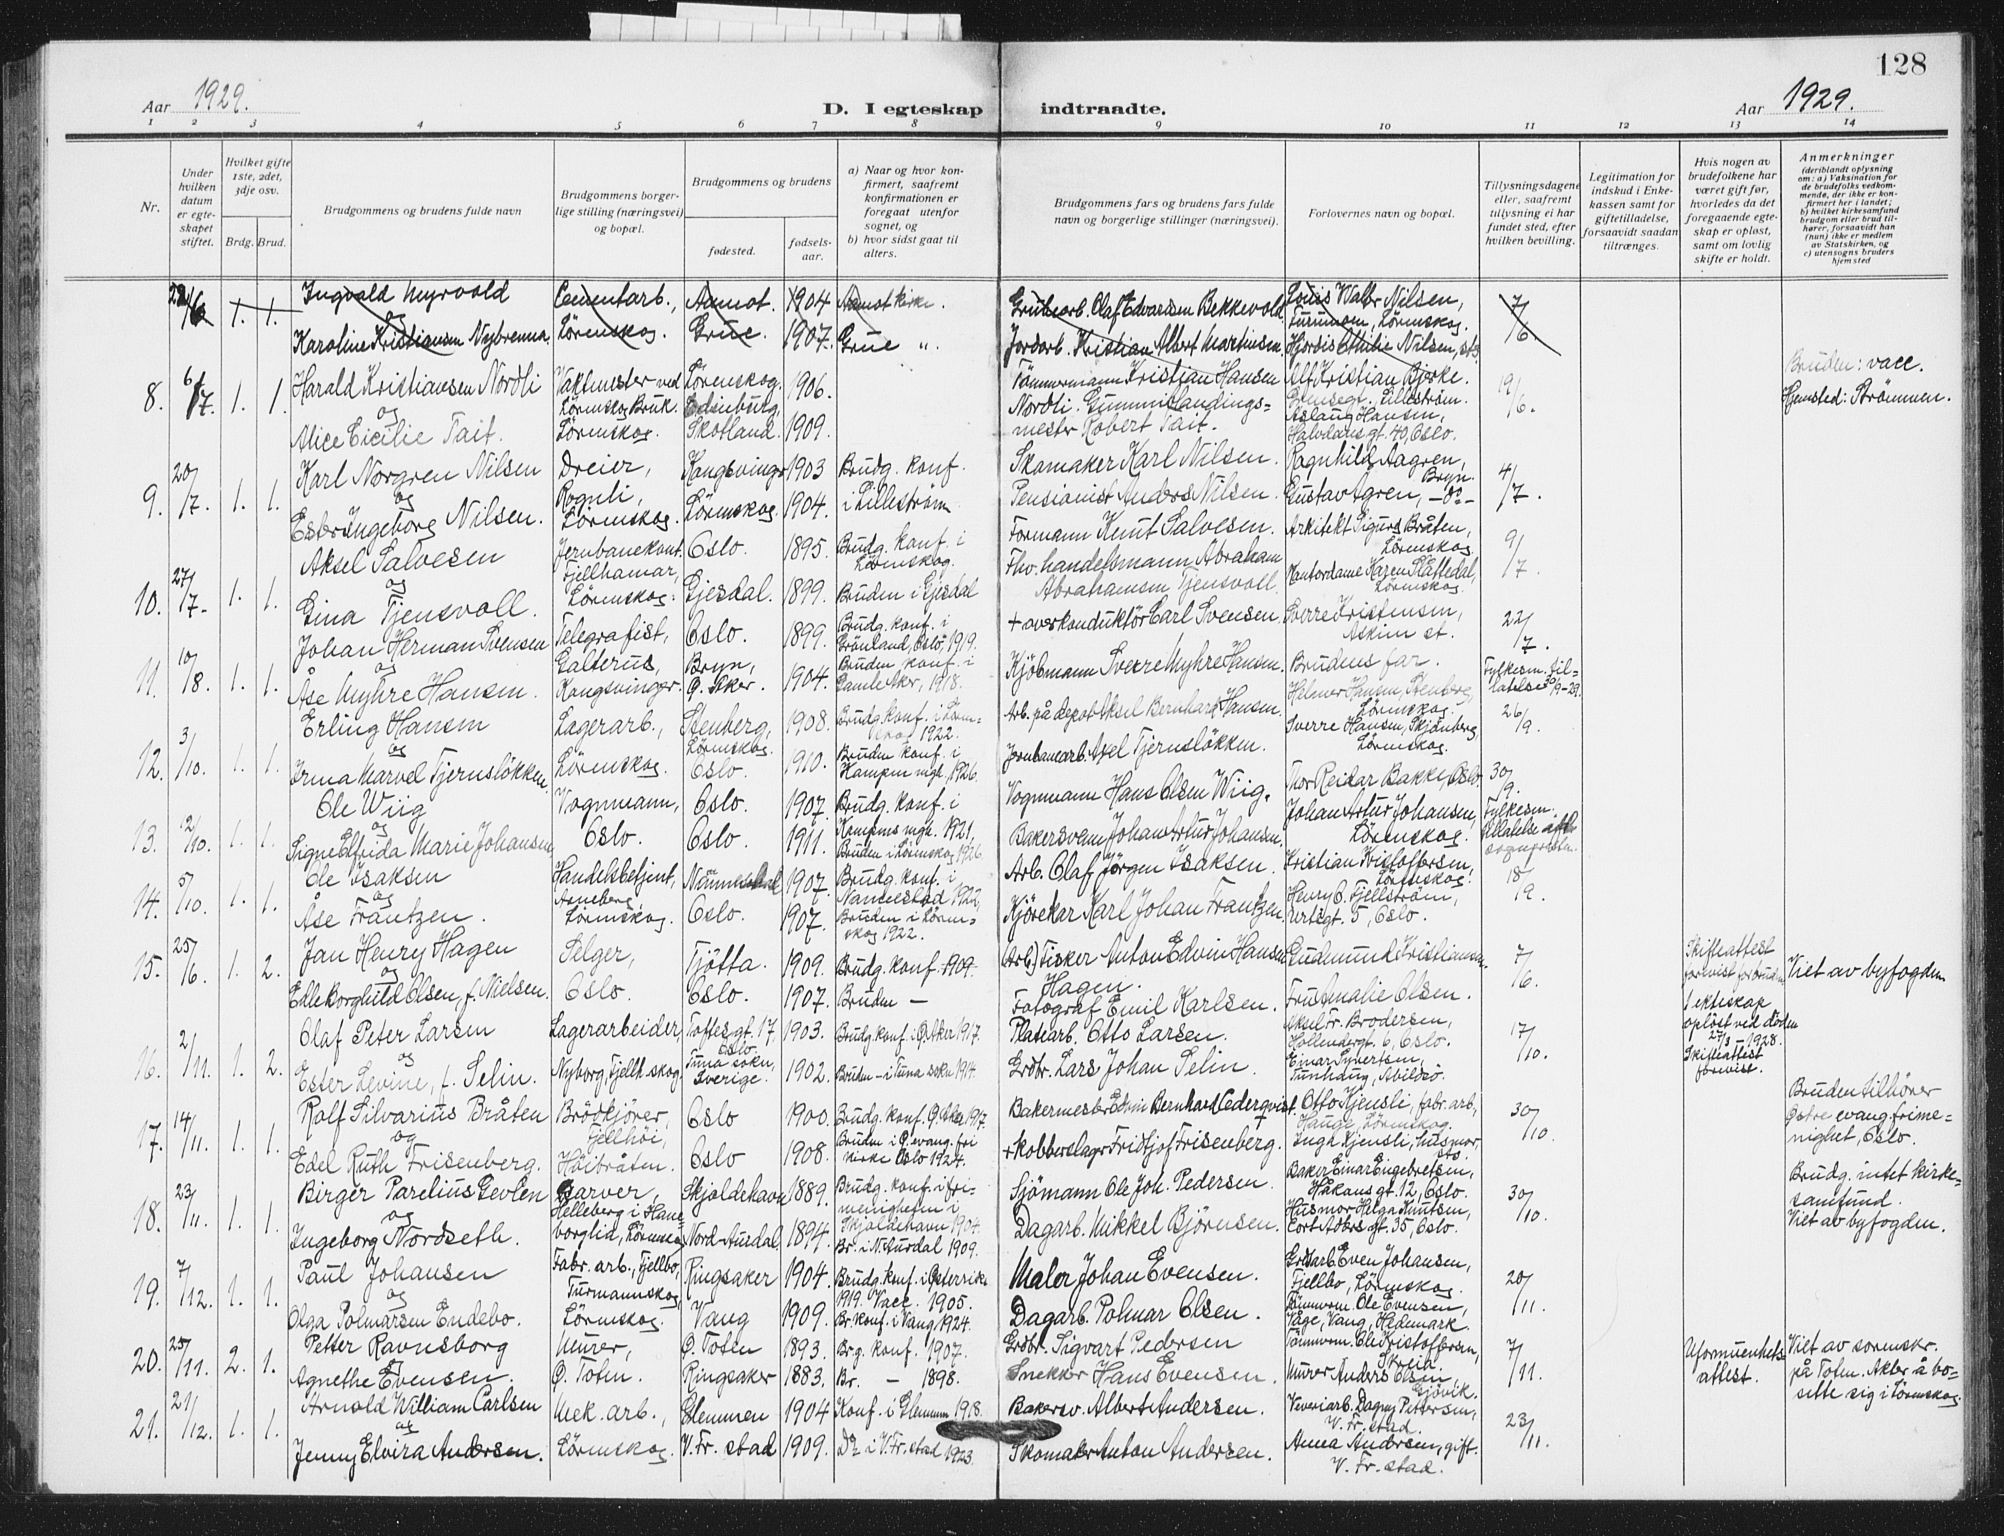 128
Aar 1929.
D. I egteskap indtraadte.
Aar 1929.
1 2 3 4 5 6 7 8 9 10 11 12 13 14
Nr.
Under hvilken datum er egteskapet stiftet.
Hvilket gifte 1ste, 2det, 3dje osv.
Brdg. Brud.
Brudgommens og brudens fulde navn
Brudgommens borgerlige stilling (næringsvei) og bopæl.
Brudgommens og brudens
fødested.
fødselsaar.
a) Naar og hvor konfirmert, saafremt konfirmationen er foregaat utenfor sognet, og
b) hvor sidst gaat til alters.
Brudgommens fars og brudens fars fulde navn og borgerlige stillinger (næringsvei).
Forlovernes navn og bopæl.
Tillysningsdagene eller, saafremt tillysning ei har fundet sted, efter hvilken bevilling.
Legitimation for indskud i Enkekassen samt for giftetilladelse, forsaavidt saadan tiltrænges.
Hvis nogen av brudefolkene har været gift før, hvorledes da det foregaaende egteskap er opløst, samt om lovlig skifte er holdt.
Anmerkninger
(deriblandt oplysning om: a) Vaksination for de brudefolks vedkommende, der ikke er konfirmert her i landet;
b) hvilket kirkesamfund brudgom eller brud tilhører, forsaavidt han (hun) ikke er medlem av Statskirken, og
c) utensogns bruders hjemsted
22/6 1. 1. Ingvald Myrvold og Cementarb., Aamot. 1904 Aamot kirke. Grubearb. Olaf Edvardsen Bekkevold. Louis Walbr Nilsen, Lørenskog. 7/6
Karoline Kristiansen Nybrenna. Lørenskog. Grue. 1907. Grue „. Jordarb. Kristian Albert Martinsen Hjørdis Nilsen, sts.
8. 6/7. 1. 1. Harald Kristiansen Nordli og Vaktmester ved Lørenskog Bruk. Lørenskog. 1906. Tömmermann Kristian Hansen Nordli. Alf Kristian Bjerke. Lillestrøm. 19/6. Bruden: vacc.
Alice Cicilie Tait. Lørenskog. Edinburg, Skotland. 1909. Gummi mester Robert Tait. Aslaug Hansen, Halvdansgt. 40, Oslo. Hjemsted: Strömmen.
9. 20/7. 1. 1. Karl Norgren Nilsen og Dreier, Kongsvinger 1903 Brudg. konf. i Lillestrøm Skomaker Karl Nilsen. Ragnhild Aagren, Bryn. 4/7.
Ester Ingeborg Nilsen. Rognli, Lørenskog. Lørenskog. 1904. Pensionist Anders Nilsen. Gustav Agren, –do–
10. 27/7. 1. 1. Aksel Salvesen og Jernbanekont. Oslo. 1895. Brudg. konf. i Lørenskog. Formann Knut Salvesen. Arkitekt Sigurd Bråten, Lørenskog 9/7.
Gina Tjensvoll. Fjellhamar, Lørenskog. Gjesdal. 1899. Bruden i Gjesdal Fhv. handelsmann Abraham Abrahamsen Tjensvoll. Kantordame Karen Slåttedal, Lørenskog.
11. 10/8. 1. 1. Johan Herman Svensen og Telegrafist, Oslo. 1899. Brudg. konf. i Grønland, Oslo, 1919. + overkonduktör Carl Svensen. Sverre Kristensen, Askim st. 22/7.
Åse Myhre Hansen. Galterud, Kongsvinger. Bryn, Ö. Aker. 1904. Bruden konf. i Gamle Aker, 1918. Kjöbmann Sverre Myhre Hansen. Brudens far.
12. 3/10. 1. 1. Erling Hansen og Lagerarb., Stenberg, Lørenskog. 1908. Brudg. konf. i Lørenskog 1922. Arb. på depot Aksel Bernhard Hansen. Helmer Hansen, Stenberg, Lørenskog. Fylkesm. tillatelse 30/9-29.
Irma Marvel Tjernsløkken. Lørenskog. Oslo. 1910. Bruden konf. i Kampen mgh. 1926. Jernbanearb. Axel Tjernsløkken. Sverre Hansen, Skjönberg, Lørenskog. 26/9.
13. 12/10. 1. 1. Ole Wiig og Vognmann, Oslo. 1907. Brudg. konf. i Kampens mgh. 1921. Vognmann Hans Olsen Wiig. Thor Reidar Bakke, Oslo. 30/9.
Signe Elfrida Marie Johansen Oslo. Oslo. 1911. Bruden i Lørenskog 1926. Bakersvenn Johan Artur Johansen. Johan Artur Johansen, Lørenskog. Fylkesm. tillatelse
14. 5/10. 1. 1. Ole Isaksen og Handelsbetjent, Nannestad 1907. Brudg. konf. i Nannestad 1922, Arb. Olaf Jörgen Isaksen. Kristian Kristoffersen, Lørenskog. 18/9.
Åse Frantzen. Lørenskog. Oslo. 1907. Bruden i Lørenskog 1922. Kjörekar Karl Johan Frantzen. Henry C. Fjellström, Vertsgt. 5, Oslo.
15. 25/6. 1. 2. Jan Henry Hagen og Selger, Tjötta. 1909. Brudg. konf. 1909. (Arb.) Fisker Anton Edvin Hansen Hagen. Gudmund Kristiansen. 7/6. Skifteattest forevist for bruden Viet av byfogden
Edle Borghild Olsen, f. Nielsen. Oslo. Oslo. 1907. Bruden – Fotograf Emil Karlsen. Fru Amalie Olsen.
16. 2/11. 1. 2. Olaf Peter Larsen og Lagerarbeider, Toftesgt. 17, Oslo. 1903. Brudg konf. i Ö. Aker 1917. Platearb. Otto Larsen. Aksel Fr. Brodersen, Hollendergt. 6, Oslo. 17/10. 1 ekteskap opløst ved döden 27/3-1928. Skifteattest forevist.
Ester Levine, f. Selin. Nyborg, Fjellh. skog. Tuna sokn, Sverige. 1902. Bruden – i Tuna sokn 1914. Grdbr. Lars Johan Selin. Einar Syvertsen, Tunhaug, Abildsö.
17. 14/11. 1. 1. Rolf Silvarius Bråten og Brödkjörer, Oslo 1900. Brudg. konf. Ö. Aker 1917. Bakermester Edvin Bernhard Cederqvist. Otto Kjensli, fabr. arb, Hauge, Lørenskog. 30/10. Bruden tilhörer Östre evang. frimenighet, Oslo.
Edel Ruth Frisenberg. Fjellhöi, Höibråten. Oslo 1908. Bruden i Ö. evang. fri kirke Oslo 1924. + kobberslager Fridtjof Frisenberg. Ingh. Kjensli, husmor, sts.
18. 23/11. 1. 1. Birger Parelius Gevlen og Garver, Skjoldehavn 1889. Brudg. konf. i frimenigheten i Skjoldehavn 1904. Sjömann Ole Joh. Pedersen. Baker Einar Engebretsen, Håkons gt. 12, Oslo. 30/10. Brudg. intet kirkesamfund. Viet av byfogden.
Ingeborg Nordseth. Helleberg i Haneborglid, Lørenskog Nord-Aurdal 1894. Br. i N. Aurdal 1909. Dagarb. Mikkel Björnsen. Husmor Helga Knutsen, Cort Adlers gt. 35, Oslo.
19. 7/12. 1. 1. Paul Johansen og Fabr. arb., Fjellbo, Ringsaker 1904. Brudg. konf. i Østerrike 1919. Vacc. 1905. Maler Johan Evensen. Grdsarb. Even Johansen, Fjellbo, Lørenskog. 20/11.
Olga Polmarsen Endebo. Turmannskog, Lørenskog. Vang 1909. Br. konf. i Vang 1924. Dagarb. Polmar Olsen. Tömmerm. Ole Evensen, Våge, Vang, Hedemark.
20. 25/11. 2. 1. Petter Ravnsborg og Murer, Ö. Toten 1893. Brg. konf. 1907. Grdbr. Sigvart Pedersen Tömmerm. Ole Kristoffersen, Skreia. 7/11. Uformuenhets attest. Viet av sorenskr. på Toten. Akter å bosette sig i Lørenskog.
Agnethe Evensen. Ö. Toten. Ringsaker 1883. Br. – 1898. Snekker Hans Evensen. Murer Anders Olsen, Gjövik.
21. 21/12. 1. 1. Arnold William Carlsen og Mek. arb., Glemmen 1904 Konf. i Glemmen 1918. Bakersv. Albert Andersen. Veveriarb. Dagny Pettersen, V. Fr. stad. 23/11.
Jenny Elvira Andersen. Lørenskog. V. Fr. stad 1909. Do i V. Fr. stad 1923. Skomaker Anton Andersen. Anna Andersen, gift. V. Fr. stad.